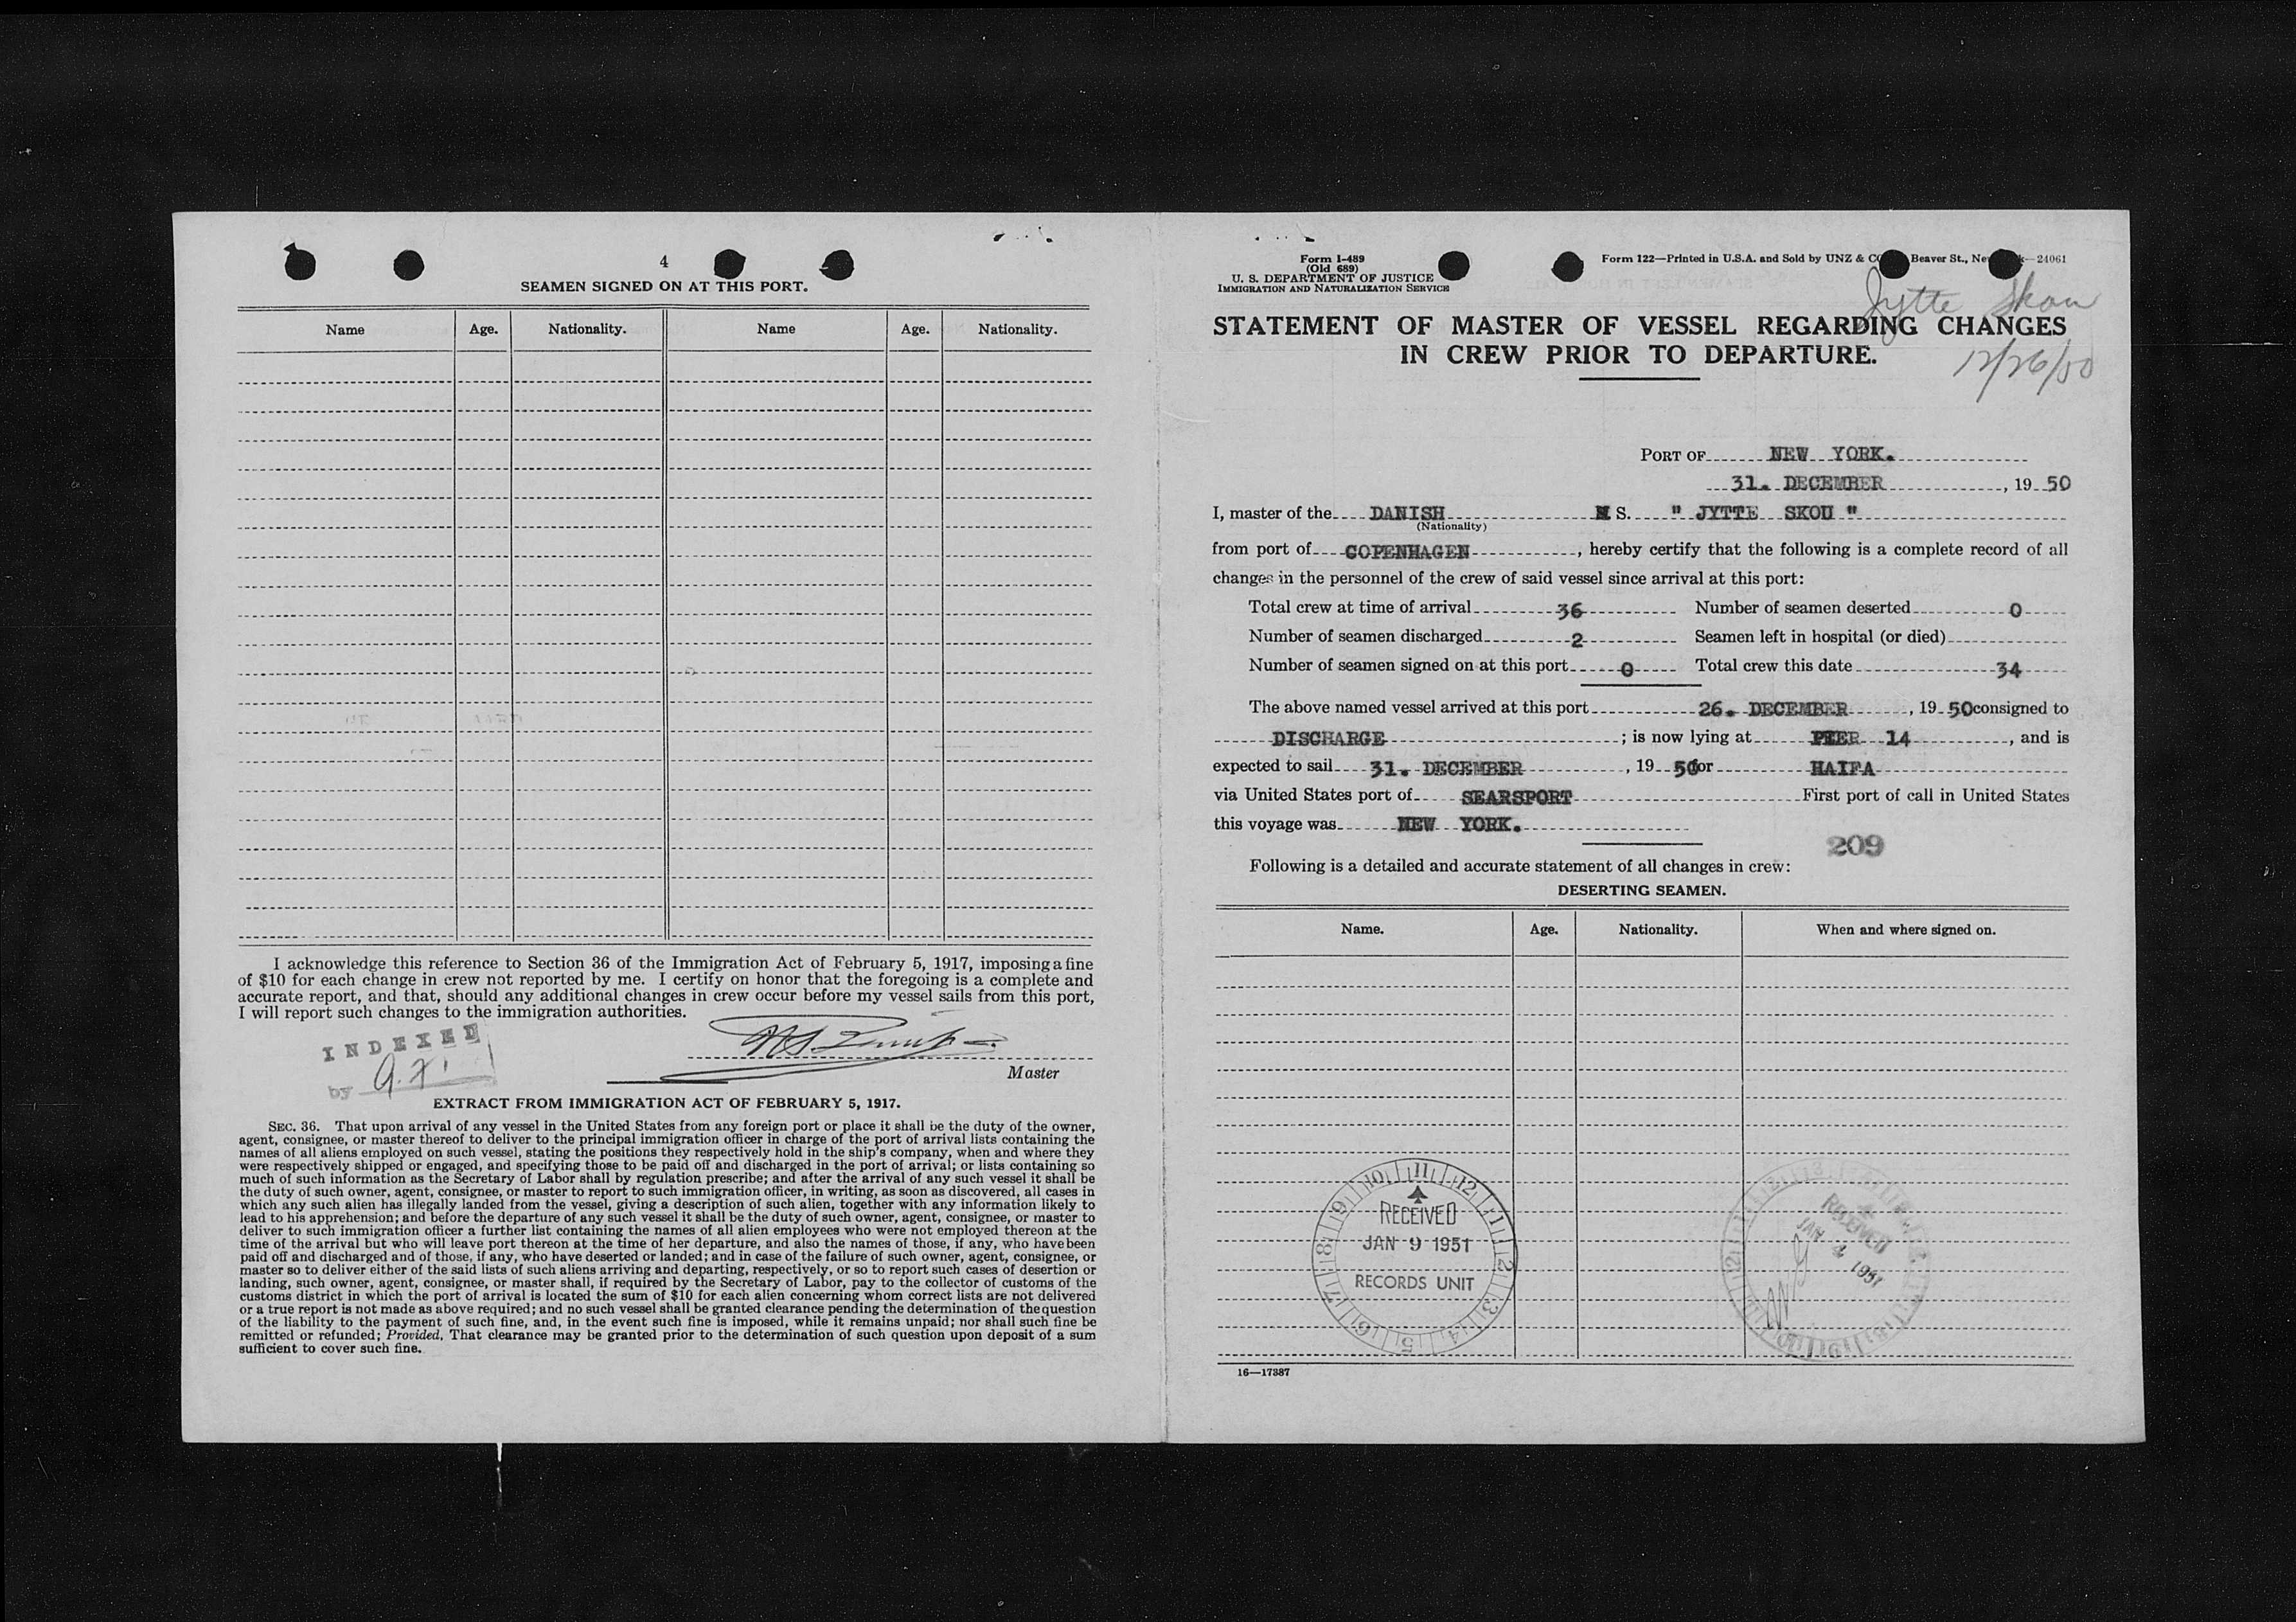 4
SEAMEN SIGNED ON AT THIS PORT.
Name Age. Nationality. Name Age. Nationality.
I acknowledge this reference to Section 36 of the Immigration Act of February 5, 1917, imposing a fine
of $10 for each change in crew not reported by me. I certify on honor that the foregoing is a complete and
accurate report, and that, should any additional changes in crew occur before my vessel sails from this port,
I will report such changes to the immigration authorities.
INDEXED
by
Master
EXTRACT FROM IMMIGRATION ACT OF FEBRUARY 5, 1917.
SEC. 36. That upon arrival of any vessel in the United States from any foreign port or place it shall be the duty of the owner,
agent, consignee, or master thereof to deliver to the principal immigration officer in charge of the port of arrival lists containing the
names of all aliens employed on such vessel, stating the positions they respectively hold in the ship's company, when and where they
were respectively shipped or engaged, and specifying those to be paid off and discharged in the port of arrival; or lists containing so
much of such information as the Secretary of Labor shall by regulation prescribe; and after the arrival of any such vessel it shall be
the duty of such owner, agent, consignee, or master to report to such immigration officer, in writing, as soon as discovered, all cases in
which any such alien has illegally landed from the vessel, giving a description of such alien, together with any information likely to
lead to his apprehension; and before the departure of any such vessel it shall be the duty of such owner, agent, consignee, or master to
deliver to such immigration officer a further list containing the names of all alien employees who were not employed thereon at the
time of the arrival but who will leave port thereon at the time of her departure, and also the names of those, if any, who have been
paid off and discharged and of those, if any, who have deserted or landed; and in case of the failure of such owner, agent, consignee, or
master so to deliver either of the said lists of such aliens arriving and departing, respectively, or so to report such cases of desertion or
landing, such owner, agent, consignee, or master shall, if required by the Secretary of Labor, pay to the collector of customs of the
customs district in which the port of arrival is located the sum of $10 for each alien concerning whom correct lists are not delivered
or a true report is not made as above required; and no such vessel shall be granted clearance pending the determination of the question
of the liability to the payment of such fine, and, in the event such fine is imposed, while it remains unpaid; nor shall such fine be
remitted or refunded; Provided, That clearance may be granted prior to the determination of such question upon deposit of a sum
sufficient to cover such fine.
Form I-489
(Old 689)
U. S. DEPARTMENT OF JUSTICE
IMMIGRATION AND NATURALIZATION SERVICE
Form 122—Printed in U.S.A. and Sold by UNZ & C Beaver St., Ne k—24061
Jytte Skou
STATEMENT OF MASTER OF VESSEL REGARDING CHANGES
IN CREW PRIOR TO DEPARTURE.
12/26/50
PORT OF NEW YORK.
31. DECEMBER, 19 50
I, master of the DANISH M S. " JYTTE SKOU "
(Nationality)
from port of COPENHAGEN, hereby certify that the following is a complete record of all
changes in the personnel of the crew of said vessel since arrival at this port:
Total crew at time of arrival 36 Number of seamen deserted 0
Number of seamen discharged 2 Seamen left in hospital (or died)
Number of seamen signed on at this port 0 Total crew this date 34
The above named vessel arrived at this port 26. DECEMBER, 19 50 consigned to
DISCHARGE; is now lying at PIER 14, and is
expected to sail 31. DECEMBER, 19 50 for HAIFA
via United States port of SEARSPORT First port of call in United States
this voyage was NEW YORK.
209
Following is a detailed and accurate statement of all changes in crew:
DESERTING SEAMEN.
Name. Age. Nationality. When and where signed on.
10 11 12 1 2 3 4 5 6 7 8 9
RECEIVED
JAN 9 1951
RECORDS UNIT
RECEIVED
JAN 4 1951
16—17387